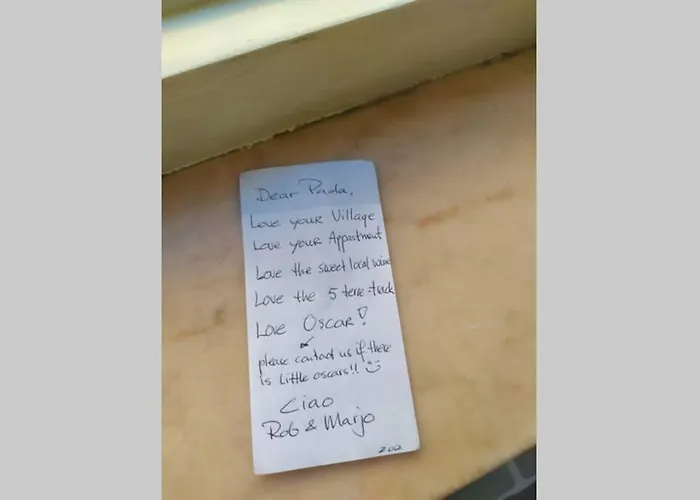 Dear Paola,
Love your Village
Love your Appartment
Love the sweet local wine
Love the 5 terre-track
Love Oscar!
please contact us if there
is little oscars!! :)
Ciao
Rob & Marjo